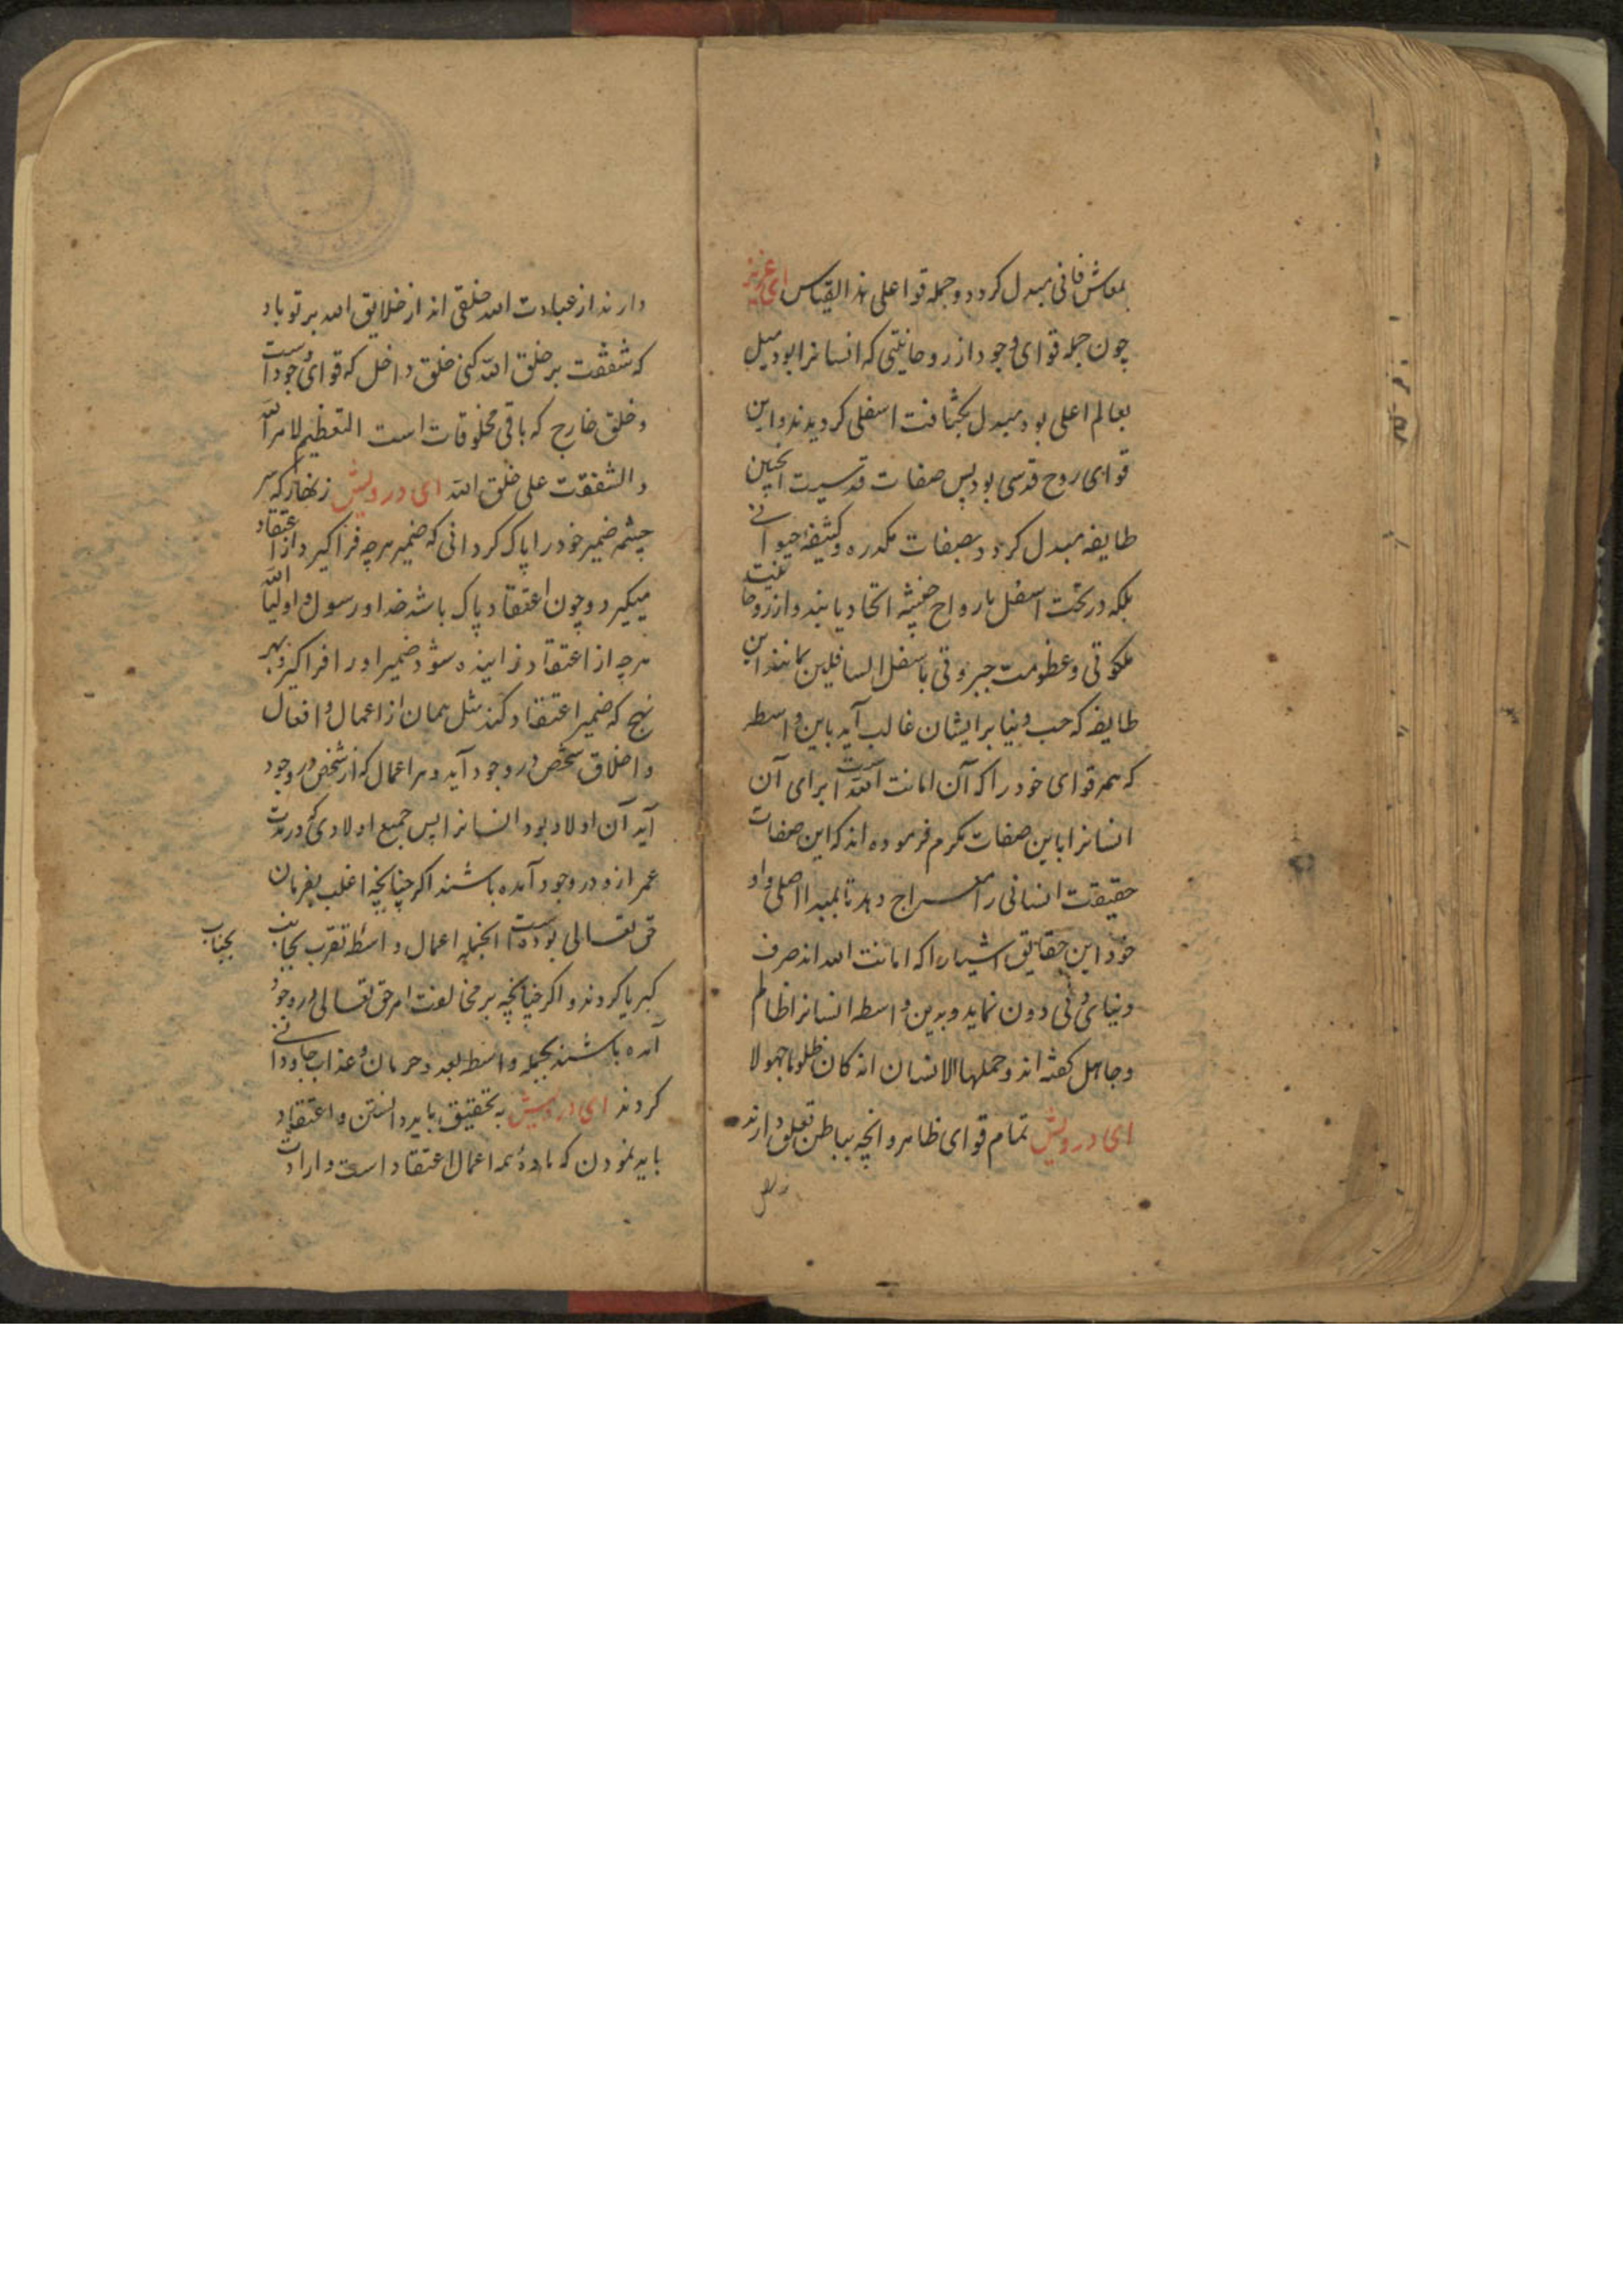 بمعاش فانی مبدل کردد و جمله قوا علی هذا القیاس ای عزیز
چون جمله قوای وجود از روحانیتی که انسانرا بود میل
بعالم اعلی بود مبدل بکثافت اسفلی کردیدند و این
قوای روح قدسی بود پس صفات قدسیست انچنین
طایفه مبدل کردد بصفات مکدره و کثیفه حیوانی
بلکه در تحت اسفل بارواح خبیثه اتحاد یابند و از روحانیت
ملکوتی و عظومت جبروتی باسفل السافلین بمانند این
طایفه که حب دنیا بر ایشان غالب آید باین واسطه
که همه قوای خود را که آن امانت الله است برای آن
انسانرا باین صفات مکرم فرموده اند که این صفات
حقیقت انسانی را معراج دهد تا بمبدا اصلی و او
خود این حقایق اشیاء را که امانت الله اند صرف
دنیای دنی دون نماید و بدین واسطه انسانرا ظالم
و جاهل کفته اند و حملها الانسان انه کان ظلوما جهولا
ای درویش تمام قوای ظاهر و انچه بباطن تعلق دارند
دارند از عبادت الله خلقی اند از خلایق الله بر تو باد
که شفقت بر خلق الله کنی خلق داخل که قوای وجود است
و خلق خارج که باقی مخلوقات است التعظیم لامر الله
و الشفقت علی خلق الله ای درویش زنهار که سر
چشمه ضمیر خود را پاک کردانی که ضمیر هرچه فرا کیرد از اعتقاد
میکیرد و چون اعتقاد پاک باشد خدا و رسول و اولیا الله
هرچه از اعتقاد زاینده شود ضمیر او را فرا کیرد بهر
نهج که ضمیر اعتقاد کند مثل همان از اعمال و افعال
و اخلاق شخص در وجود آید و هر اعمال که از شخص در وجود
آید آن اولاد بود انسانرا پس جمیع اولادی که در مدت
عمر ازو در وجود آمده باشند اکر چنانچه اغلب بفرمان
حق تعالی بوده است انجمله اعمال واسطه تقرب بجانب
بجناب
کبریا کردند و اکر چنانچه بر مخالفت امر حق تعالی در وجود
آمده باشند بجمله واسطه بعد و حرمان و عذاب جاودانی
کردند ای درویش به تحقیق باید دانستن و اعتقاد
باید نمودن که ماده همه اعمال اعتقاد است و ارادت